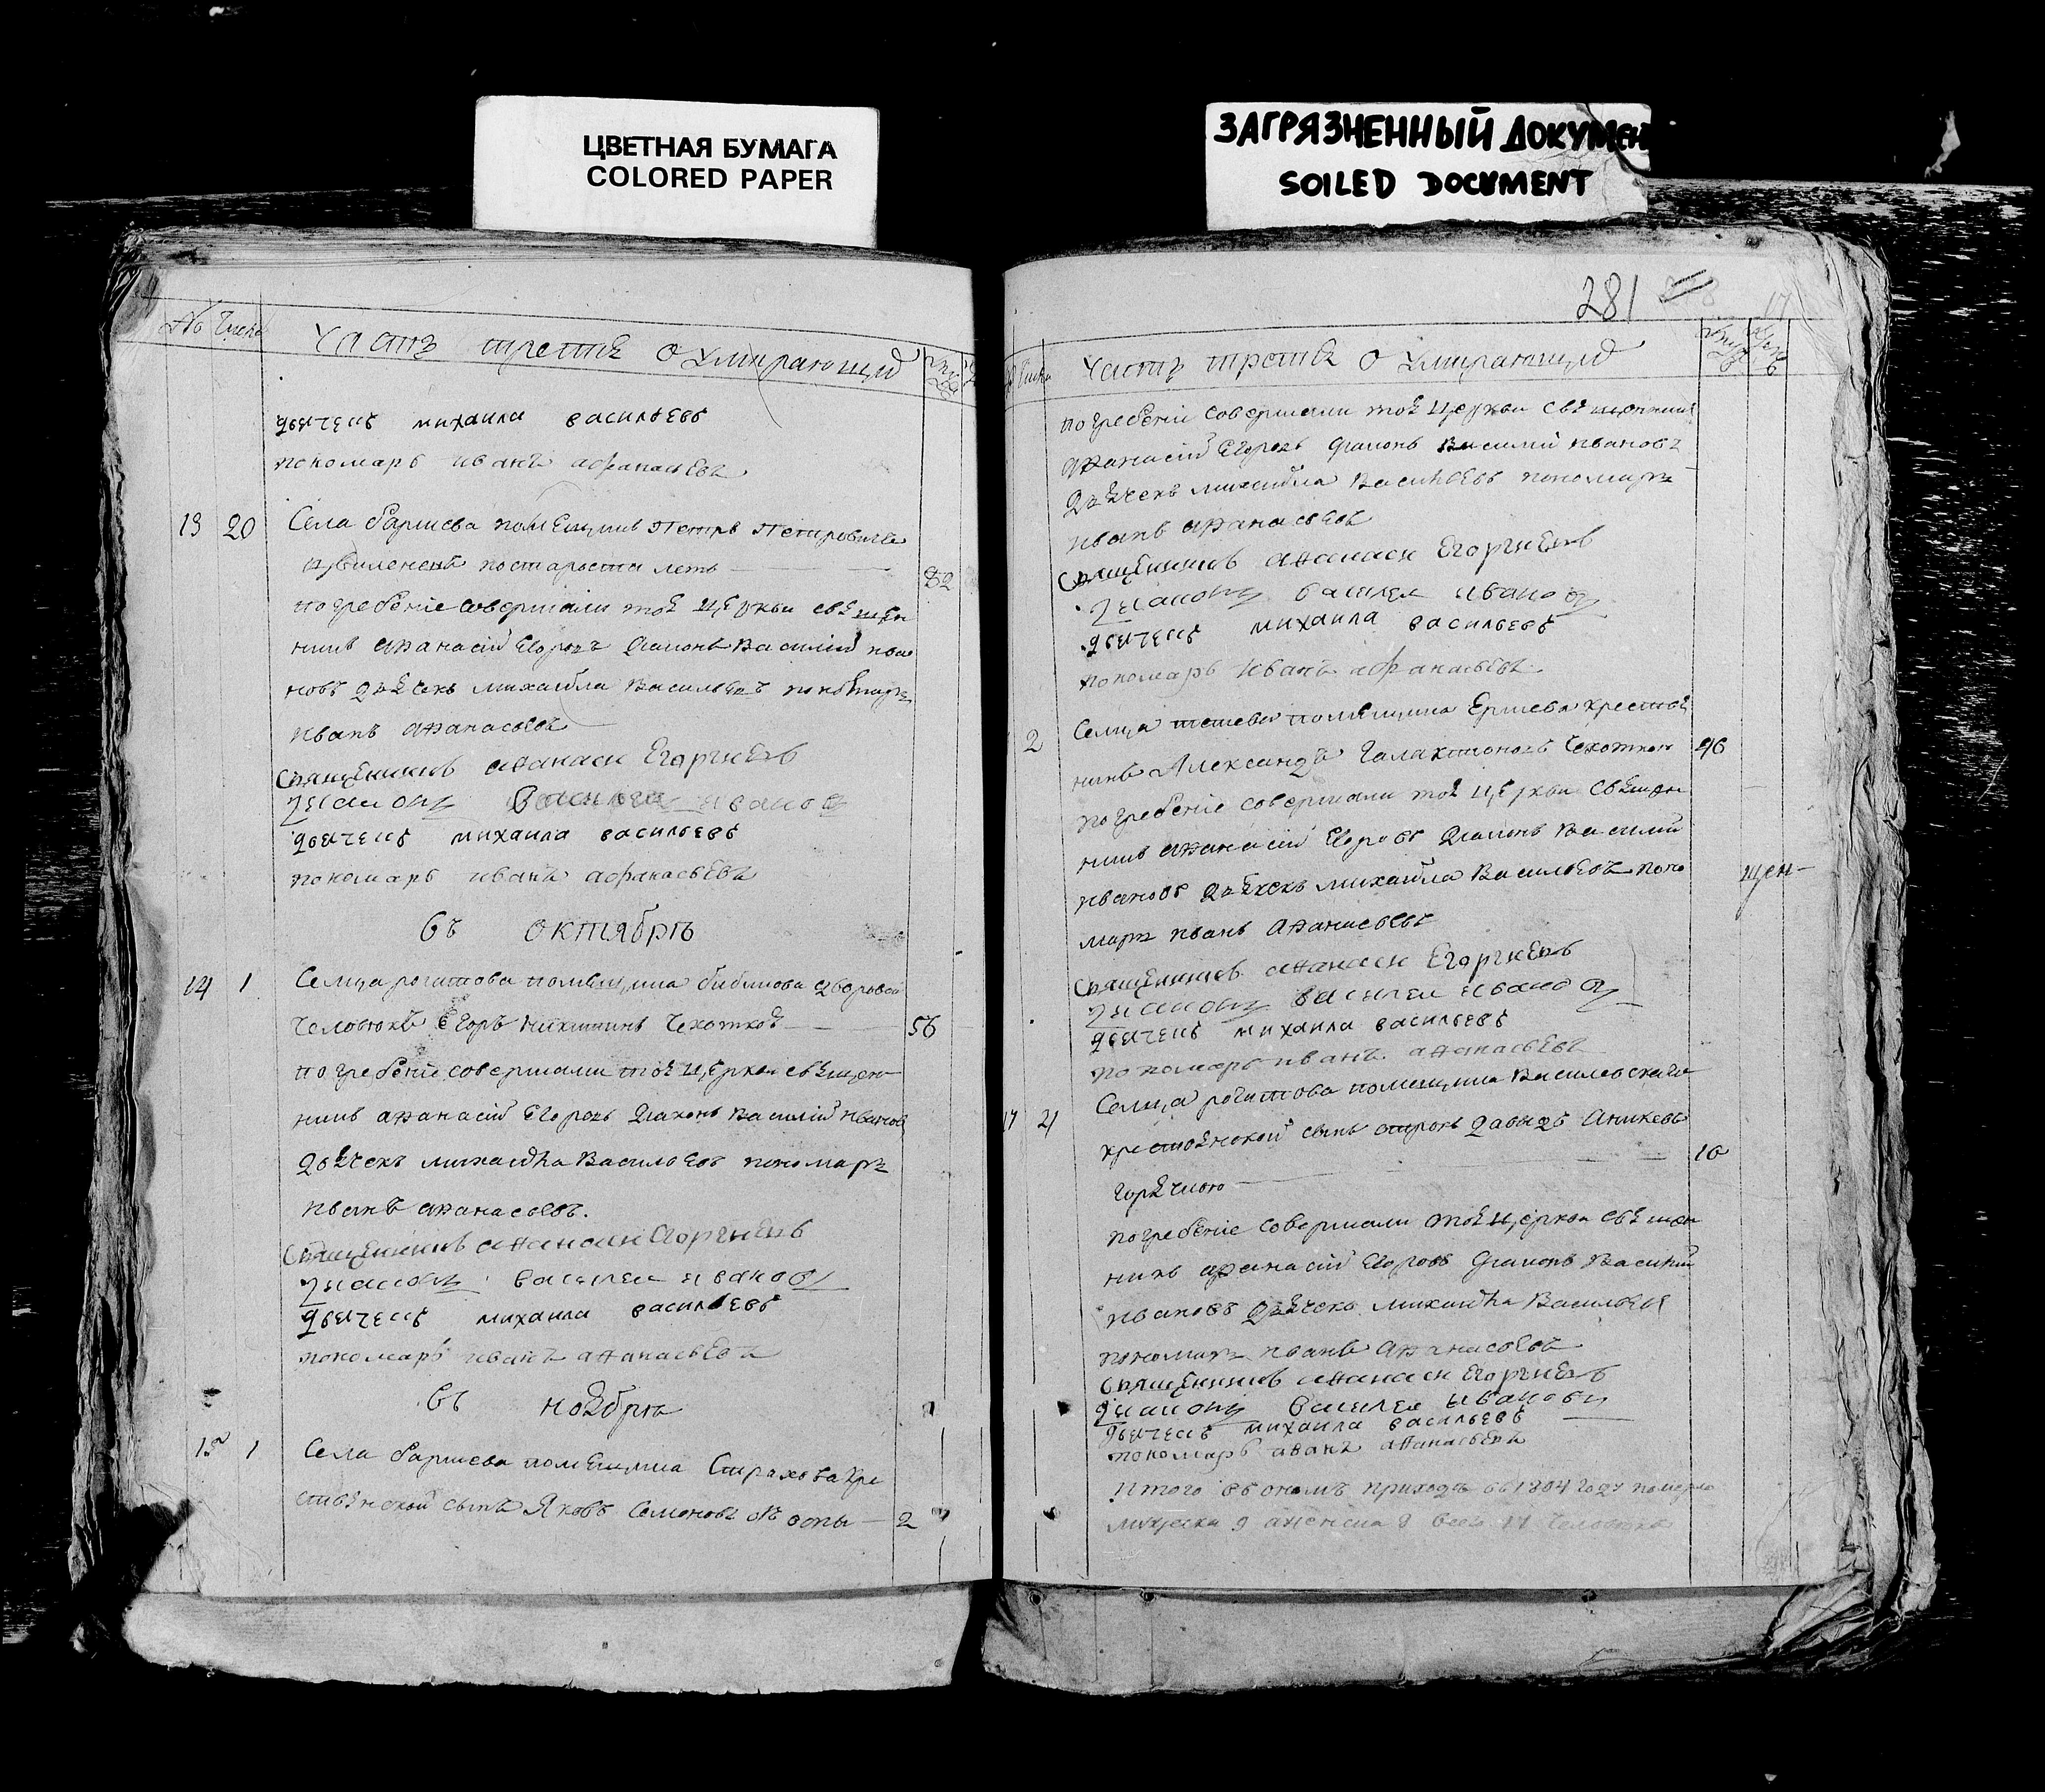 ЦВЕТНАЯ БУМАГА
COLORED PAPER
ЗАГРЯЗНЕННЫЙ ДОКУМЕН
SOILED DOCUMENT
№ Числа
Часть третія О Умирающих
дьячекъ михаила васильевъ
пономарь иванъ афанасьевъ
13 20 Села Бариева помещикъ Петръ Петровичь
по старости летъ 82
погребеніе совершали тоя церкви священ
никъ афанасій Егоровъ диаконъ Василій ива
новъ дьячекъ михайла Васильевъ пономарь
иванъ афанасьевъ
Священникъ афанаси Егоригиевъ
диаконъ василеи ивановъ
дьячекъ михаила васильевъ
пономарь иванъ афанасьевъ
въ октябрѣ
14 1 Селца рогатова помещика бибикова дворовой
человекъ Егоръ Никитинъ чехоткой 56
погребеніе совершали тоя церкви священ
никъ афанасій Егоровъ диаконъ василій иванов
дьячекъ михайла Васильевъ пономарь
иванъ афанасьевъ.
Священникъ афанаси Егоригиевъ
диаконъ василеи ивановъ
дьячекъ михаила васильевъ
пономарь иванъ афанасьевъ
въ ноябрѣ
15 1 Села бариева помещика Страхова кре
стьянской сынъ Яковъ Семеновъ оспы 2
281
17
Числа Часть третія О Умирающих
погребеніе совершали тоя церкви священникъ
афанасій Егоровъ диаконъ Василій ивановъ
дьячекъ михайла Васильевъ пономарь
иванъ афанасьевъ
Священникъ афанаси Егоригиевъ
диаконъ василеи ивановъ
дьячекъ михаила васильевъ
пономарь иванъ афанасьевъ
2 Селца помещика Ершева крестья
нинъ Александръ Галактионовъ чехоткои 46
погребеніе совершали тоя церкви священ
никъ афанасій Егоровъ диаконъ Василий
ивановъ дьячекъ михайла Васильевъ поно
марь иванъ афанасьевъ
щен
Священникъ афанаси Егоригиевъ
диаконъ василеи ивановъ
дьячекъ михаила васильевъ
пономарь иванъ афанасьевъ
17 21 Селца рогатова помещика Василевскаго
крестьянской сынъ отрокъ давыдъ Аникевъ
горячкою 10
погребеніе совершали тоя церкви священ
никъ афанасій Егоровъ диаконъ Василий
ивановъ дьячекъ михайла Васильев
пономарь иванъ афанасьевъ
Священникъ афанаси Егоригиевъ
диаконъ василеи ивановъ
дьячекъ михаила васильевъ
пономарь иванъ афанасьевъ
Итого въ ономъ приходѣ въ 1804 году померло
мужеска 9 женска 8 всего 17 человекъ